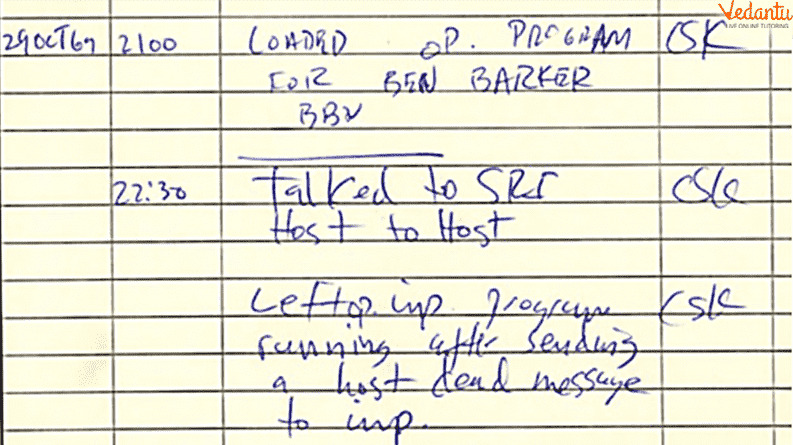 Vedantu
LIVE ONLINE TUTORING
29 OCT 69 2100 LOADED OP. PROGRAM CSK
FOR BEN BARKER
BBN
22:30 Talked to SRI CSK
Host to Host
Left op. imp. program CSK
running after sending
a host dead message
to imp.